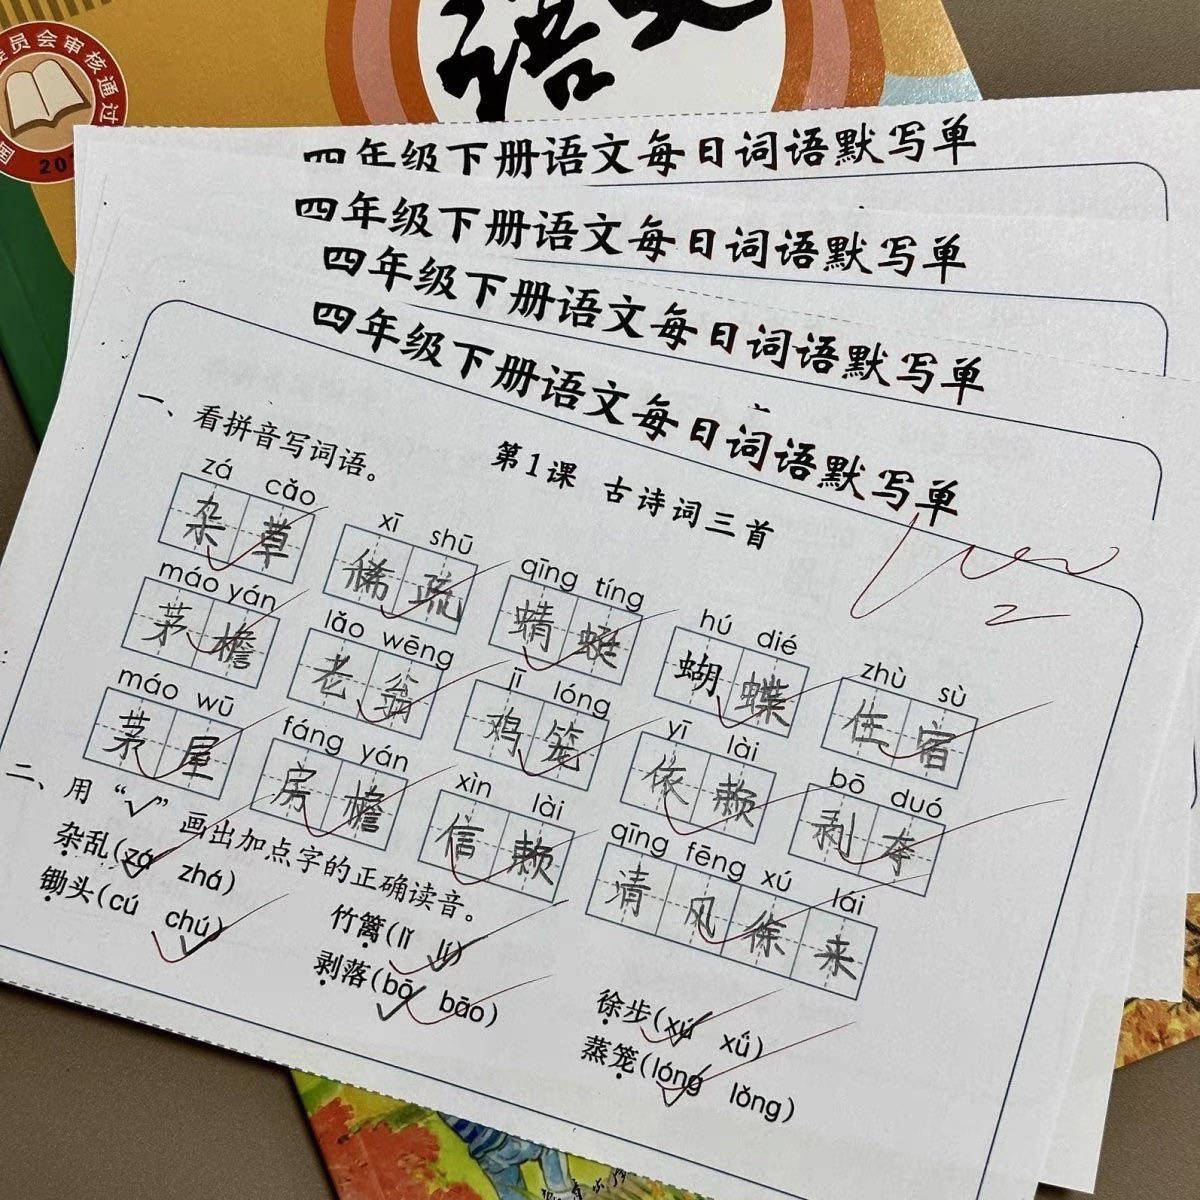 语文
员会审核通过
四年级下册语文每日词语默写单
四年级下册语文每日词语默写单
四年级下册语文每日词语默写单
四年级下册语文每日词语默写单
第1课 古诗词三首
一、看拼音写词语。
zá cǎo xī shū qīng tíng hú dié zhù sù
杂草 稀疏 蜻蜓 蝴蝶 住宿
máo yán lǎo wēng jī lóng yī lài bō duó
茅檐 老翁 鸡笼 依赖 剥夺
máo wū fáng yán xìn lài qīng fēng xú lái
茅屋 房檐 信赖 清风徐来
二、用“√”画出加点字的正确读音。
杂乱(zá zhá) 竹篱(lǐ lí) 徐步(xú xǘ)
锄头(cú chú) 剥落(bō bāo) 蒸笼(lóng lǒng)